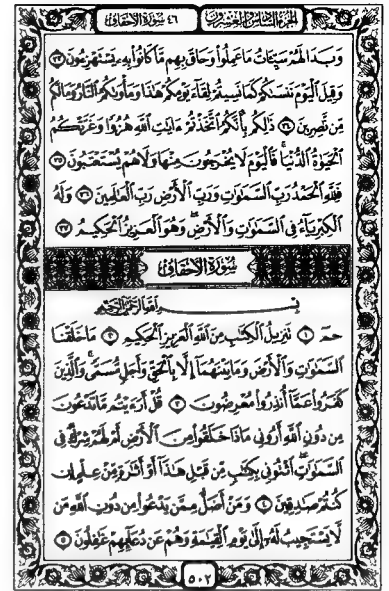 الجزء السادس والعشرون
٤٦ سورة الأحقاف
وَبَدَا لَهُمْ سَيِّـَٔاتُ مَا عَمِلُوا۟ وَحَاقَ بِهِم مَّا كَانُوا۟ بِهِۦ يَسْتَهْزِءُونَ ٣٣
وَقِيلَ ٱلْيَوْمَ نَنسَىٰكُمْ كَمَا نَسِيتُمْ لِقَآءَ يَوْمِكُمْ هَٰذَا وَمَأْوَىٰكُمُ ٱلنَّارُ وَمَا لَكُم
مِّن نَّٰصِرِينَ ٣٤ ذَٰلِكُم بِأَنَّكُمُ ٱتَّخَذْتُمْ ءَايَٰتِ ٱللَّهِ هُزُوًا وَغَرَّتْكُمُ
ٱلْحَيَوٰةُ ٱلدُّنْيَا ۚ فَٱلْيَوْمَ لَا يُخْرَجُونَ مِنْهَا وَلَا هُمْ يُسْتَعْتَبُونَ ٣٥
فَلِلَّهِ ٱلْحَمْدُ رَبِّ ٱلسَّمَٰوَٰتِ وَرَبِّ ٱلْأَرْضِ رَبِّ ٱلْعَٰلَمِينَ ٣٦ وَلَهُ
ٱلْكِبْرِيَآءُ فِى ٱلسَّمَٰوَٰتِ وَٱلْأَرْضِ ۖ وَهُوَ ٱلْعَزِيزُ ٱلْحَكِيمُ ٣٧
سورة الأحقاف
بِسْمِ ٱللَّهِ ٱلرَّحْمَٰنِ ٱلرَّحِيمِ
حمٓ ١ تَنزِيلُ ٱلْكِتَٰبِ مِنَ ٱللَّهِ ٱلْعَزِيزِ ٱلْحَكِيمِ ٢ مَا خَلَقْنَا
ٱلسَّمَٰوَٰتِ وَٱلْأَرْضَ وَمَا بَيْنَهُمَآ إِلَّا بِٱلْحَقِّ وَأَجَلٍ مُّسَمًّى ۚ وَٱلَّذِينَ
كَفَرُوا۟ عَمَّآ أُنذِرُوا۟ مُعْرِضُونَ ٣ قُلْ أَرَءَيْتُم مَّا تَدْعُونَ
مِن دُونِ ٱللَّهِ أَرُونِى مَاذَا خَلَقُوا۟ مِنَ ٱلْأَرْضِ أَمْ لَهُمْ شِرْكٌ فِى
ٱلسَّمَٰوَٰتِ ۖ ٱئْتُونِى بِكِتَٰبٍ مِّن قَبْلِ هَٰذَآ أَوْ أَثَٰرَةٍ مِّنْ عِلْمٍ إِن
كُنتُمْ صَٰدِقِينَ ٤ وَمَنْ أَضَلُّ مِمَّن يَدْعُوا۟ مِن دُونِ ٱللَّهِ مَن
لَّا يَسْتَجِيبُ لَهُۥٓ إِلَىٰ يَوْمِ ٱلْقِيَٰمَةِ وَهُمْ عَن دُعَآئِهِمْ غَٰفِلُونَ ٥
٥٠٢